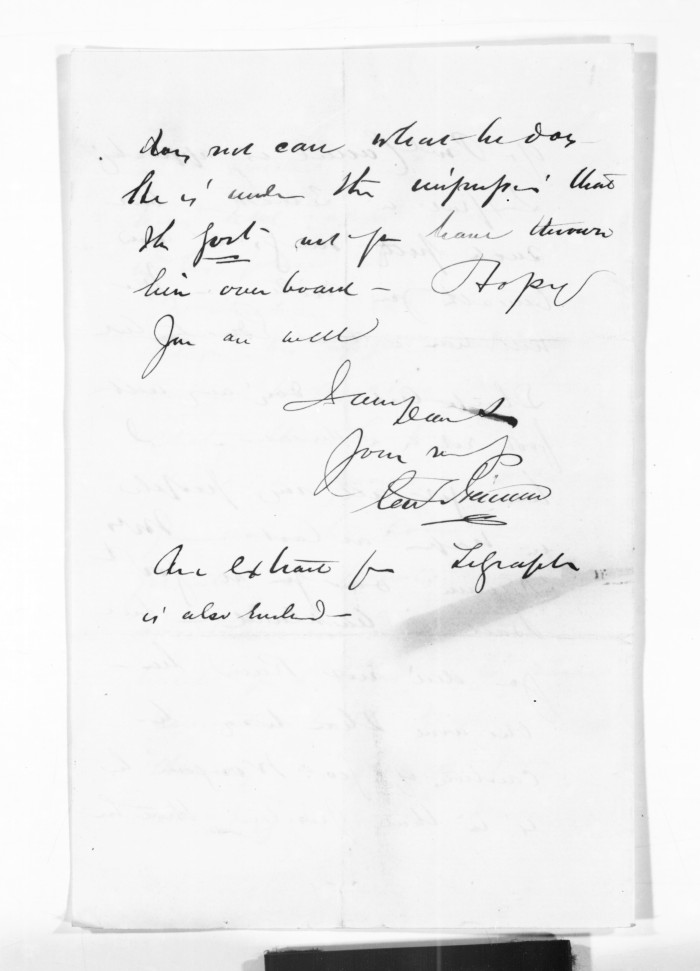 does not care what he does
He is under the impression that
the Govt. have thrown
him over board - Hoping
you are well
I am Dear Sir
Your
An extract from Telegraph
is also enclosed -